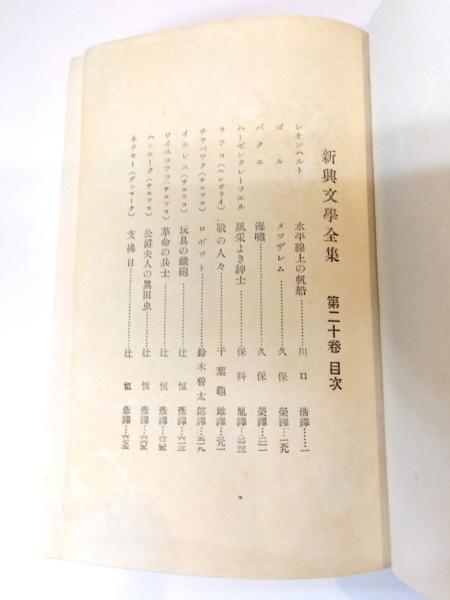 新興文學全集　第二十卷 目次
レオンハルト　水平線上の帆船……川口　浩譯……一
ゴル　メツザレム……久保　榮譯……一五九
パクエ　海嘯……久保　榮譯……二一一
ハーゼンクレーフエル　風采よき紳士……保科　胤譯……
ラツコ(ハンガリイ)　戰の人々……千葉龜雄譯……
チヤペツク(チエツコ)　ロボツト……鈴木善太郎譯……五一九
イルレス(チエツコ)　玩具の鐵砲……辻　恒彥譯……六一三
ワイスコツフ(チエツコ)　革命の兵士……辻　恒彥譯……
ハシエーク(チエツコ)　公爵夫人の眞田虫……辻　恒彥譯……六四五
ネクセー(デンマーク)　支拂日……辻　恒彥譯……六五五